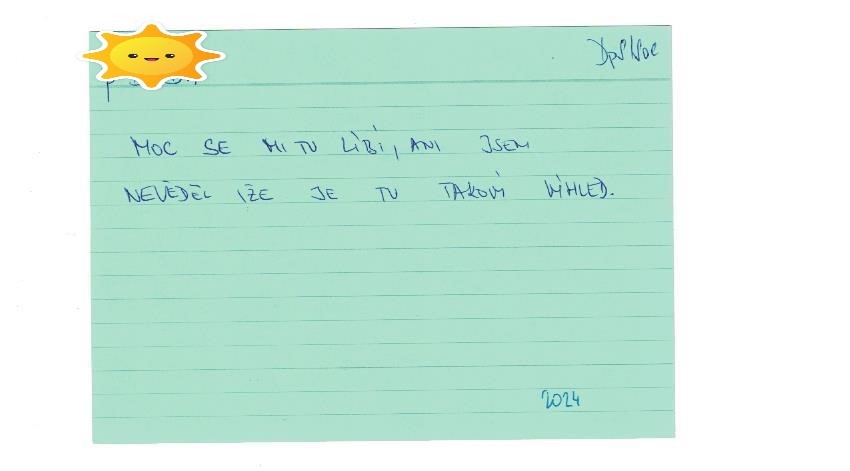 MOC SE MI TU LÍBÍ, ANI JSEM
NEVĚDĚL, ŽE JE TU TAKOVÍ VÍHLED.
2024